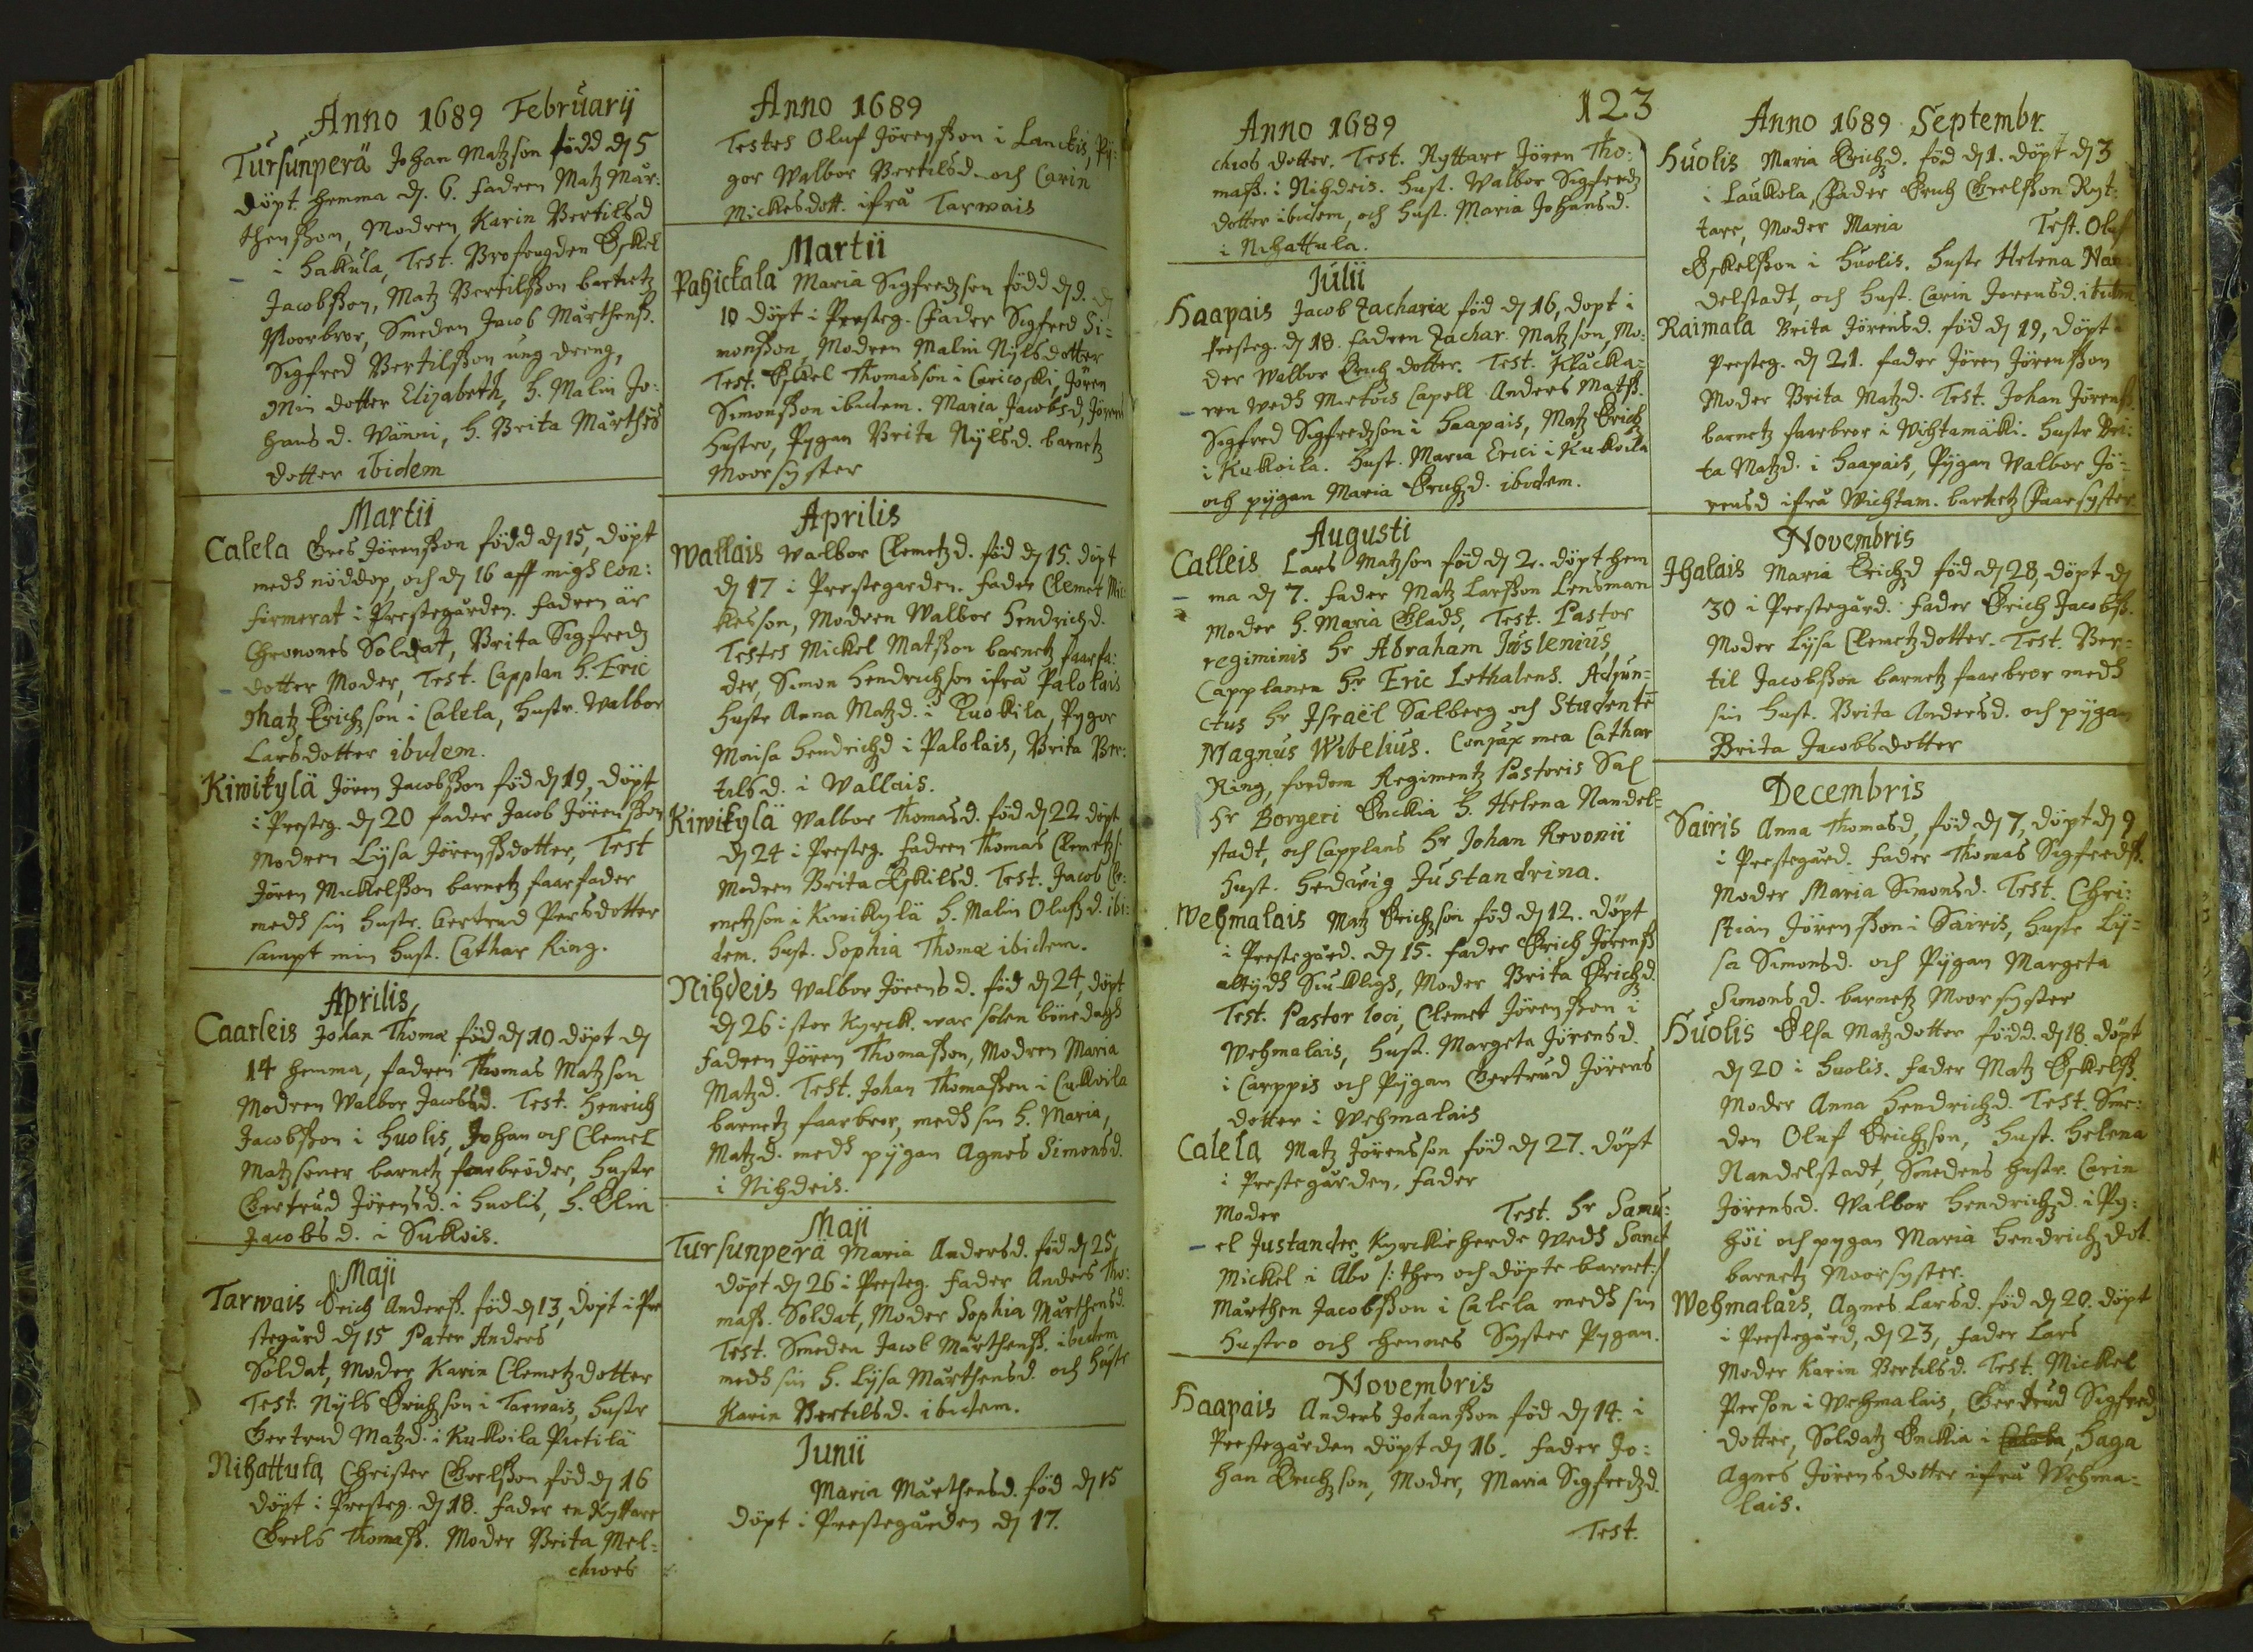 Anno 1689 Februarij
Tursunperä Johan Matzson född dj 5
döpt hemma dj. 6. fadren Matz Mår:
thensson, Modren Karin Bertilsd
i Hakula, Test. Brofougden Eskel
Jacobsson, Matz Bertilsson barnetz
Moorbror, Smeden Jacob Mårthenss.
Sigfred Bertilsson ung dreng,
Min dotter Elizabeth, H. Malin Jo:
hans d. Wänni, H. Brita Mårthens
dotter ibidem
Martii
Calela Gres Jörensson född dj 15, döpt
medh nöddop, och dj 16 aff migh con:
firmerat i Prestegården. fadren är
Chronones Soldat, Brita Sigfredz
dotter Moder, Test. Capplan H. Eric
Matz Erichson i Calela, hustr. Walbor
Larsdotter ibidem.
Kiwikylä Jören Jacobsson föd dj 19, döpt
i Presteg. dj 20 fader Jacob Jörensson
Modren Lysa Jörenssdotter, Test
Jören Mickelsson barnetz faarfader
medh sin hustr. Gertrud Persdotter
sampt min hust. Cathar Ring.
Aprilis
Caarleis Johan Thomæ föd dj 10 döpt dj
14 hemma, fadren Thomas Matzson
Modren Walbor Jacobsd. Test. Henrich
Jacobsson i Huolis, Johan och Clemet
Matzsoner barnetz faarbröder, hustr
Gertrud Jörensd. i Huolis, H. Elin
Jacobsd. i Sukois.
Maji
Tarwais Erich Anderss. föd dj 13, döpt i Pre
stegård dj 15 Pater Anders
Soldat, Moder Karin Clemetzdotter
Test. Nyls Erichson i Tarwais, hustr
Gertrud Matzd. i Kukoila Pietilä
Nihattula Christer Grelsson föd dj 16
döpt i Presteg. dj 18. fader en Ryttare
Grels Thomass. Moder Brita Mel=
chiors
Anno 1689
Testes Oluf Jörensson i Lanckis, Py:
gor Walbor Bertilsd. och Carin
Mickelsdott. ifrå Tarwais
Martii
Pahickala Maria Sigfredzson född dj 9. dj
10 döpt i Presteg. Fader Sigfred Si=
monsson, Modren Malin Nylsdotter
Test. Eskel Thomasson i Carioski, Jören
Simonsson ibidem. Maria Jacobsd, Jörens
hustro, Pygan Brita Nylsd. barnetz
Moorsyster
Aprilis
Wallais Walbor Clemetzd. föd dj 15. döpt
dj 17 i Prestegarden. fader Clemet Mic
kesson, Modren Walbor Hendrichd.
Testes Mickel Matsson barnetz faarfa:
der, Simon Hendrichson ifrå Palolais
hustr Anna Matzd. i Ruokila, Pygor
Maisa Hendrichd i Palolais, Brita Ber:
tilsd. i Wallais.
Kiwikylä Walbor Thomasd. föd dj 22 döpt
dj 24 i Presteg. fadren Thomas Clemetzs.
Modren Brita Eskilsd. Test. Jacob Cle:
metzson i Kiwikylä H. Malin Olufsd. ibi:
dem. hust. Sophia Thomæ ibidem.
Nihdeis Walbor Jörensd. föd dj 24, döpt
dj 26 i stor Kyrck. war solen bönedagh
fadren Jören Thomasson, Modren Maria
Matzd. Test. Johan Thomasson i Cukoila
barnetz faarbror, medh sin H. Maria,
Matzd. medh pygan Agnes Simonsd.
i Nihdeis.
Maji
Tursunperä Maria Andersd. föd dj 25,
döpt dj 26 i Presteg. fader Anders Tho:
mass. Soldat, Moder Sophia Mårthensd.
Test. Smeden Jacob Mårthenss. ibidem
medh sin H. Lysa Mårthensd. och hustr
Karin Bertilsd. ibidem.
Junii
Maria Mårthensd. föd dj 15
döpt i Prestegården dj 17.
123
Anno 1689
chiors dotter. Test. Ryttare Jören Tho:
mass. i Nihdeis. hust. Walbor Sigfredz
dotter ibidem, och hust. Maria Johansd.
i Nihattula.
Julii
Haapais Jacob Zachariæ föd dj 16, döpt i
Presteg. dj 18. fadren Zachar. Matzson, Mo:
der Walbor Erichdotter. Test. Klåcka=
ren wedh Mietois Capell Anders Matss.
Sigfred Sigfredzson i Haapais, Matz Erich
i Kukoila. hust. Maria Erici i Kukoila
och pygan Maria Erichd. ibidem.
Augusti
Calleis Lars Matzson föd dj 2. döpt hem
ma dj 7. fader Matz Larsson Lensman
Moder H. Maria Gladh, Test. Pastor
regiminis Hr Abraham Juslenius,
Capplanen Hr Eric Lethalens. Adjun=
ctus Hr Israël Salberg och Studente
Magnus Wibelius. Conjux mea Cathar
Ring, fordom Regimentz Pastoris Sal
Hr Borgeri Enckia H. Helena Nandel=
stadt, och Capplans Hr Johan Arvonii
hust. Hedwig Justandrina.
Wehmalais Matz Erichson föd dj 12. döpt
i Prestegård. dj 15. fader Erich Jörenss
altijdh Siukligh, Moder Brita Erichd.
Test. Pastor loci, Clemet Jörensson i
Wehmalais, hust. Margeta Jörensd.
i Carppis och Pygan Gertrud Jörens
dotter i Wehmalais
Calela Matz Jörensson föd dj 27. döpt
i Prestegården, fader
Moder Test. Hr Samu:
el Justander Kyrckieherde wedh Sanct
Mickel i Åbo /: then och döpte barnet:/
Mårthen Jacobsson i Calela medh sin
hustro och hennes Syster Pygan.
Novembris
Haapais Anders Johansson föd dj 14. i
Prestegården döpt dj 16. Fader Jo:
han Erichson, Moder, Maria Sigfredzd.
Test.
Anno 1689 Septembr.
Huolis Maria Erichd. föd dj 1. döpt dj 3
i Laukola, Fader Erich Grelsson Ryt:
tare, Moder Maria Test. Oluf
Eskelsson i Huolis. hustr Helena Nan
delstadt, och hust. Carin Jörensd. ibidem
Raimala Brita Jörensd. föd dj 19, döpt i
Presteg. dj 21. fader Jören Jörensson
Moder Brita Matzd. Test. Johan Jörenss.
barnetz faarbror i Wihtamäki. hustr Bri:
ta Matzd. i Haapais, Pygan Walbor Jö=
rensd ifrå Wichtam. barnetz Faarsyster.
Novembris
Ihalais Maria Erichd föd dj 28, döpt dj
30 i Prestegård. Fader Erich Jacobss.
Moder Lysa Clemetzdotter. Test. Ber=
til Jacobsson barnetz faarbror medh
sin hust. Brita Andersd. och pygan
Brita Jacobsdotter
Decembris
Sairis Anna Thomasd, föd dj 7, döpt dj 9
i Prestegård. fader Thomas Sigfredss.
Moder Maria Simonsd. Test. Chri:
stian Jörensson i Sairis, hustr Ly=
sa Simonsd. och Pygan Margeta
Simonsd. barnetz Moorsyster
Huolis Elsa Matzdotter född. dj 18 döpt
dj 20 i Huolis. fader Matz Eskelss.
Moder Anna Hendrichd. Test. Sme:
den Oluf Erichson, hust. Helena
Nandelstadt, Smedens hustr. Carin
Jörensd. Walbor Hendrichd. i Py:
höi och pygan Maria Hendrichdot.
barnetz Moorsyster.
Wehmalais, Agnes Larsd. föd dj 20. döpt
i Prestegård, dj 23, fader Lars
Moder Karin Bertilsd. Test. Mickel
Person i Wehmalais, Gertrud Sigfred
dotter, Soldatz Enckia i Calela, Haga
Agnes Jörensdotter ifrå Wehma=
lais.